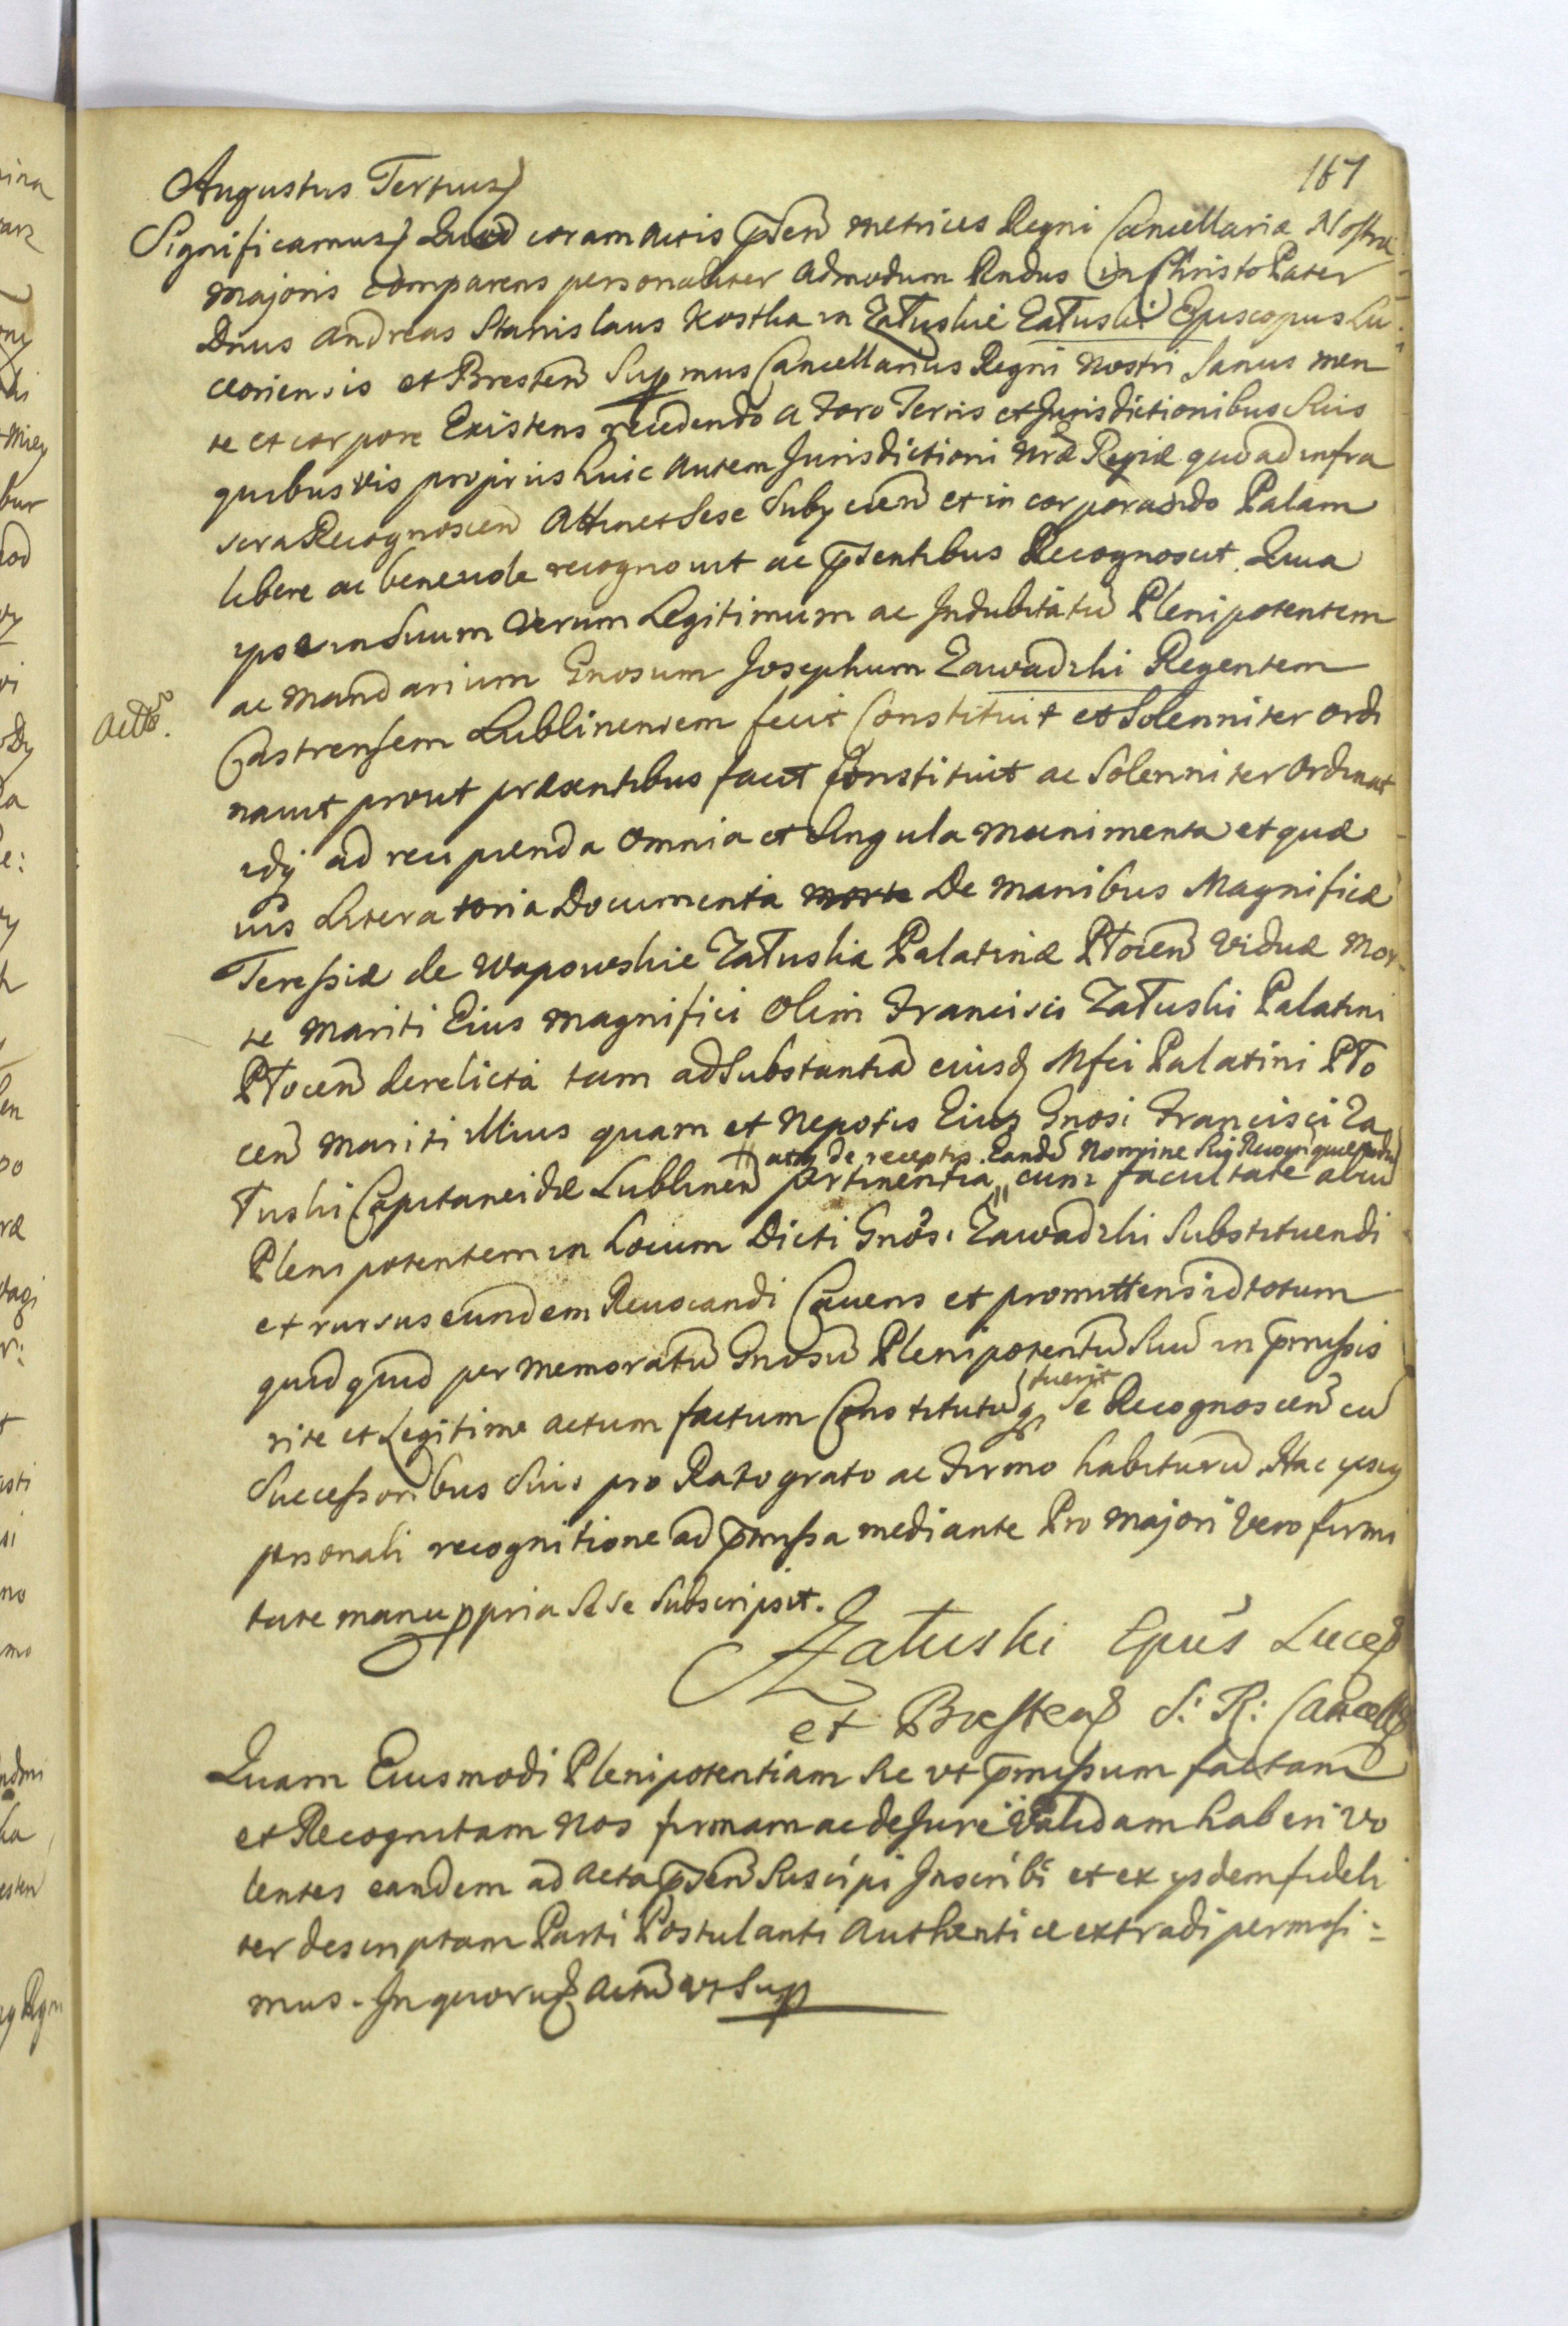 167
Augustus Tertius
Significamus Quod coram Actis pñten Metrices Regni Cancellariæ Nostræ
Majoris comparens personaliter Admodum Rndus in Christo Pater
Dnus Andreas Stanislaus Kostka in Załuskie Załuski Episcopus Lu
ceoriensis et Bresten Supmus Cancellarius Regni Nostri Sanus men
te et corpore Existens recedendo a Foro Terris et Jurisdictionibus Suis
quibusvis propriis huic autem Jurisdictioni Nræ Regiæ quo ad infra
scra Recognoscen Attinet Sese Subjicien et incorporando Palam
libere ac benevole recognovit ac pñtentibus Recognoscit. Quia
ipse in Suum Verum Legitimum ac Indubitatũ Plenipotentem
ac Mandarium Gnosum Josephum Zawadzki Regentem
Castrensem Lublinensem fecit Constituit et Solenniter ordi
navit prout præsentibus facit Constituit ac Solenniter Ordinat
idq ad recipienda Omnia et Singula Munimenta et quæ
vis Literatoria Documenta De manibus Magnificæ
Teressiæ de Wapowskie Załuska Palatinæ Płocen Viduæ Mor
te Mariti Eius Magnifici Olim Francisci Załuski Palatini
Płocen derelicta tam ad Substantiã eiusd Mfci Palatini Pło
cen Mariti illius quam et Nepotis Eius Gnosi Francisci Za
atq de receptis Eandẽ Nomine Sui
łuski Capitaneidæ Lublinen pertinentia cum facultate aliũ
Plenipotentem in Locum Dicti Gnosi Zawadzki Substituendi
et rursus eundem Revocandi Cavens et promittens id totum
quidquid per memoratũ Gnosũ Plenipotentẽ Suũ in præmissis
rite et Legitime actum factum Constitutũq fuerit Se Recognoscen cũ
Successoribus Suis pro Rato grato ac Firmo habiturũ. Hac
personali recognitione ad præmissa mediante Pro majori vero firmi
tate manu ppria Sese Subscripsit.
Załuski Epũs Luceo
et Bresten S: R: Cancell
Quam Eiusmodi Plenipotentiam Sic ut præmissum factam
et Recognitam Nos firmam ac de Jure Validam haberi vo
lentes eandem ad Acta pñten Suscipi Inscribi et ex ysdem fideli
ter descriptam Parti Postulanti Authentice extradi permisi=
mus. In quorũ Actũ ut Sup